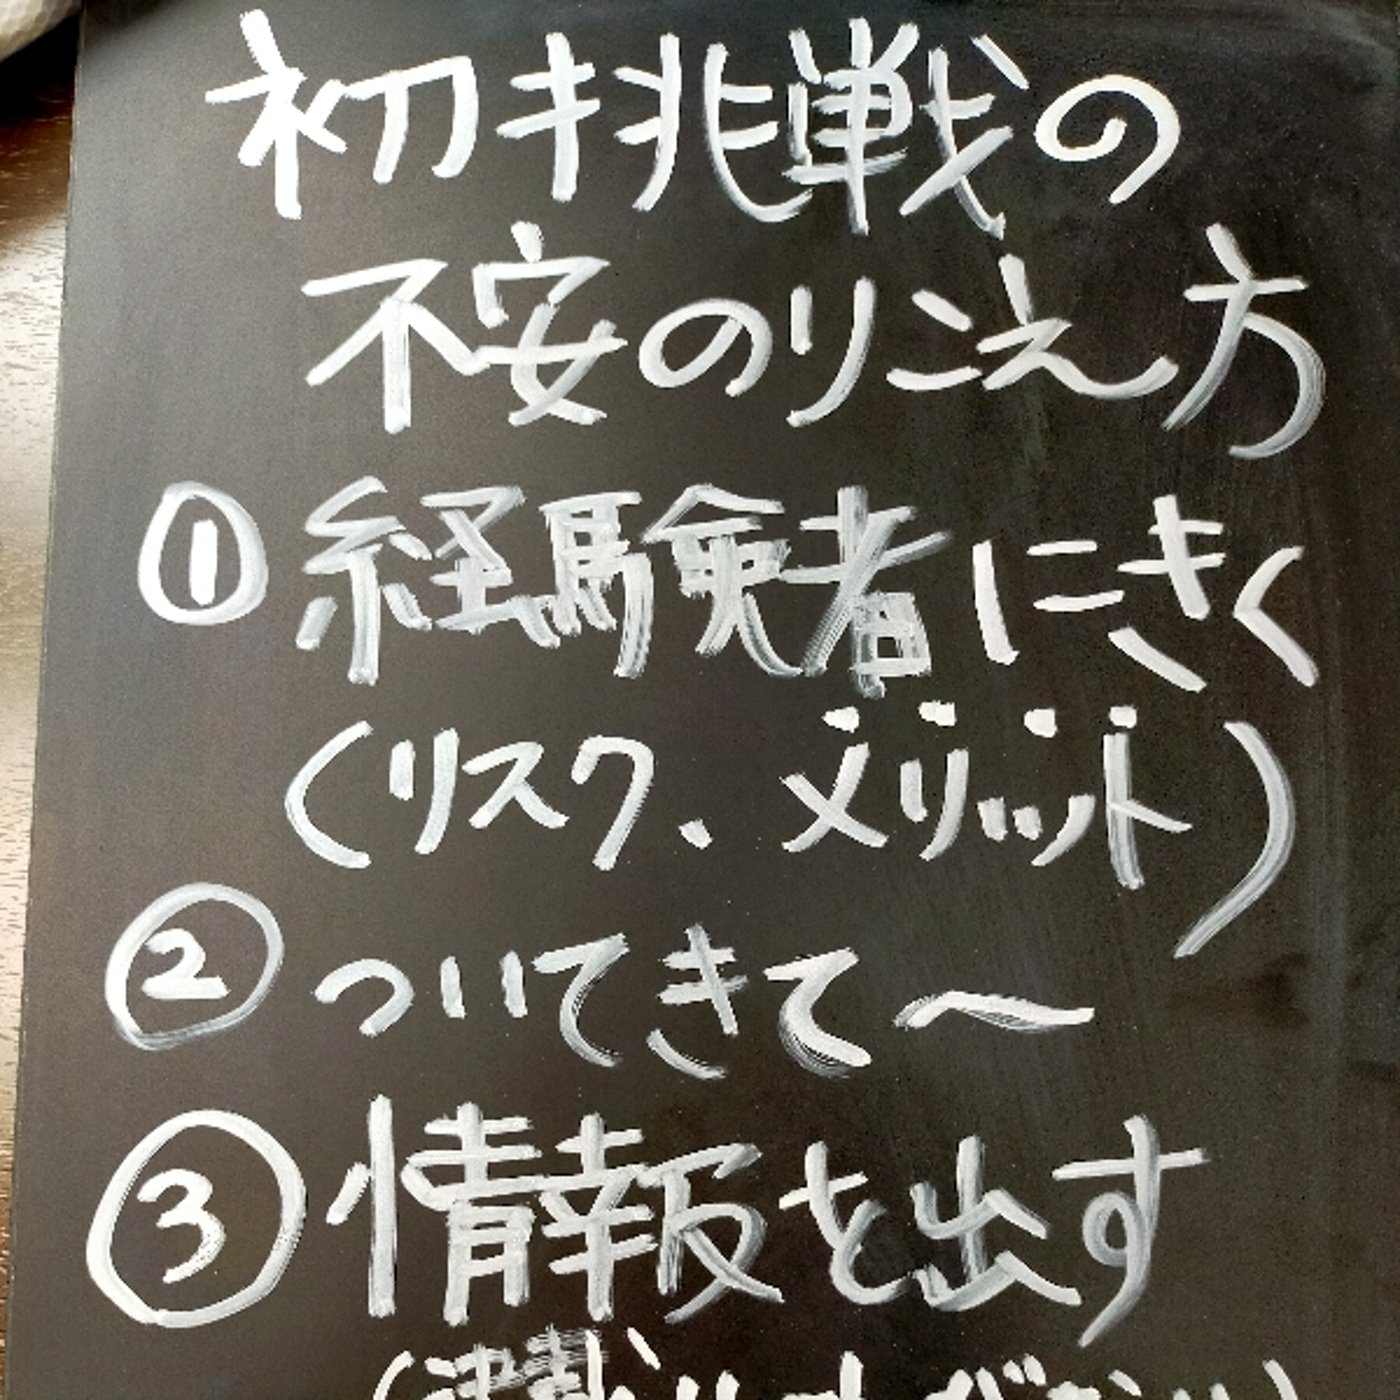 初挑戦の
不安のりこえ方
① 経験者にきく
(リスク、メリット)
② ついてきて〜
③ 情報を出す